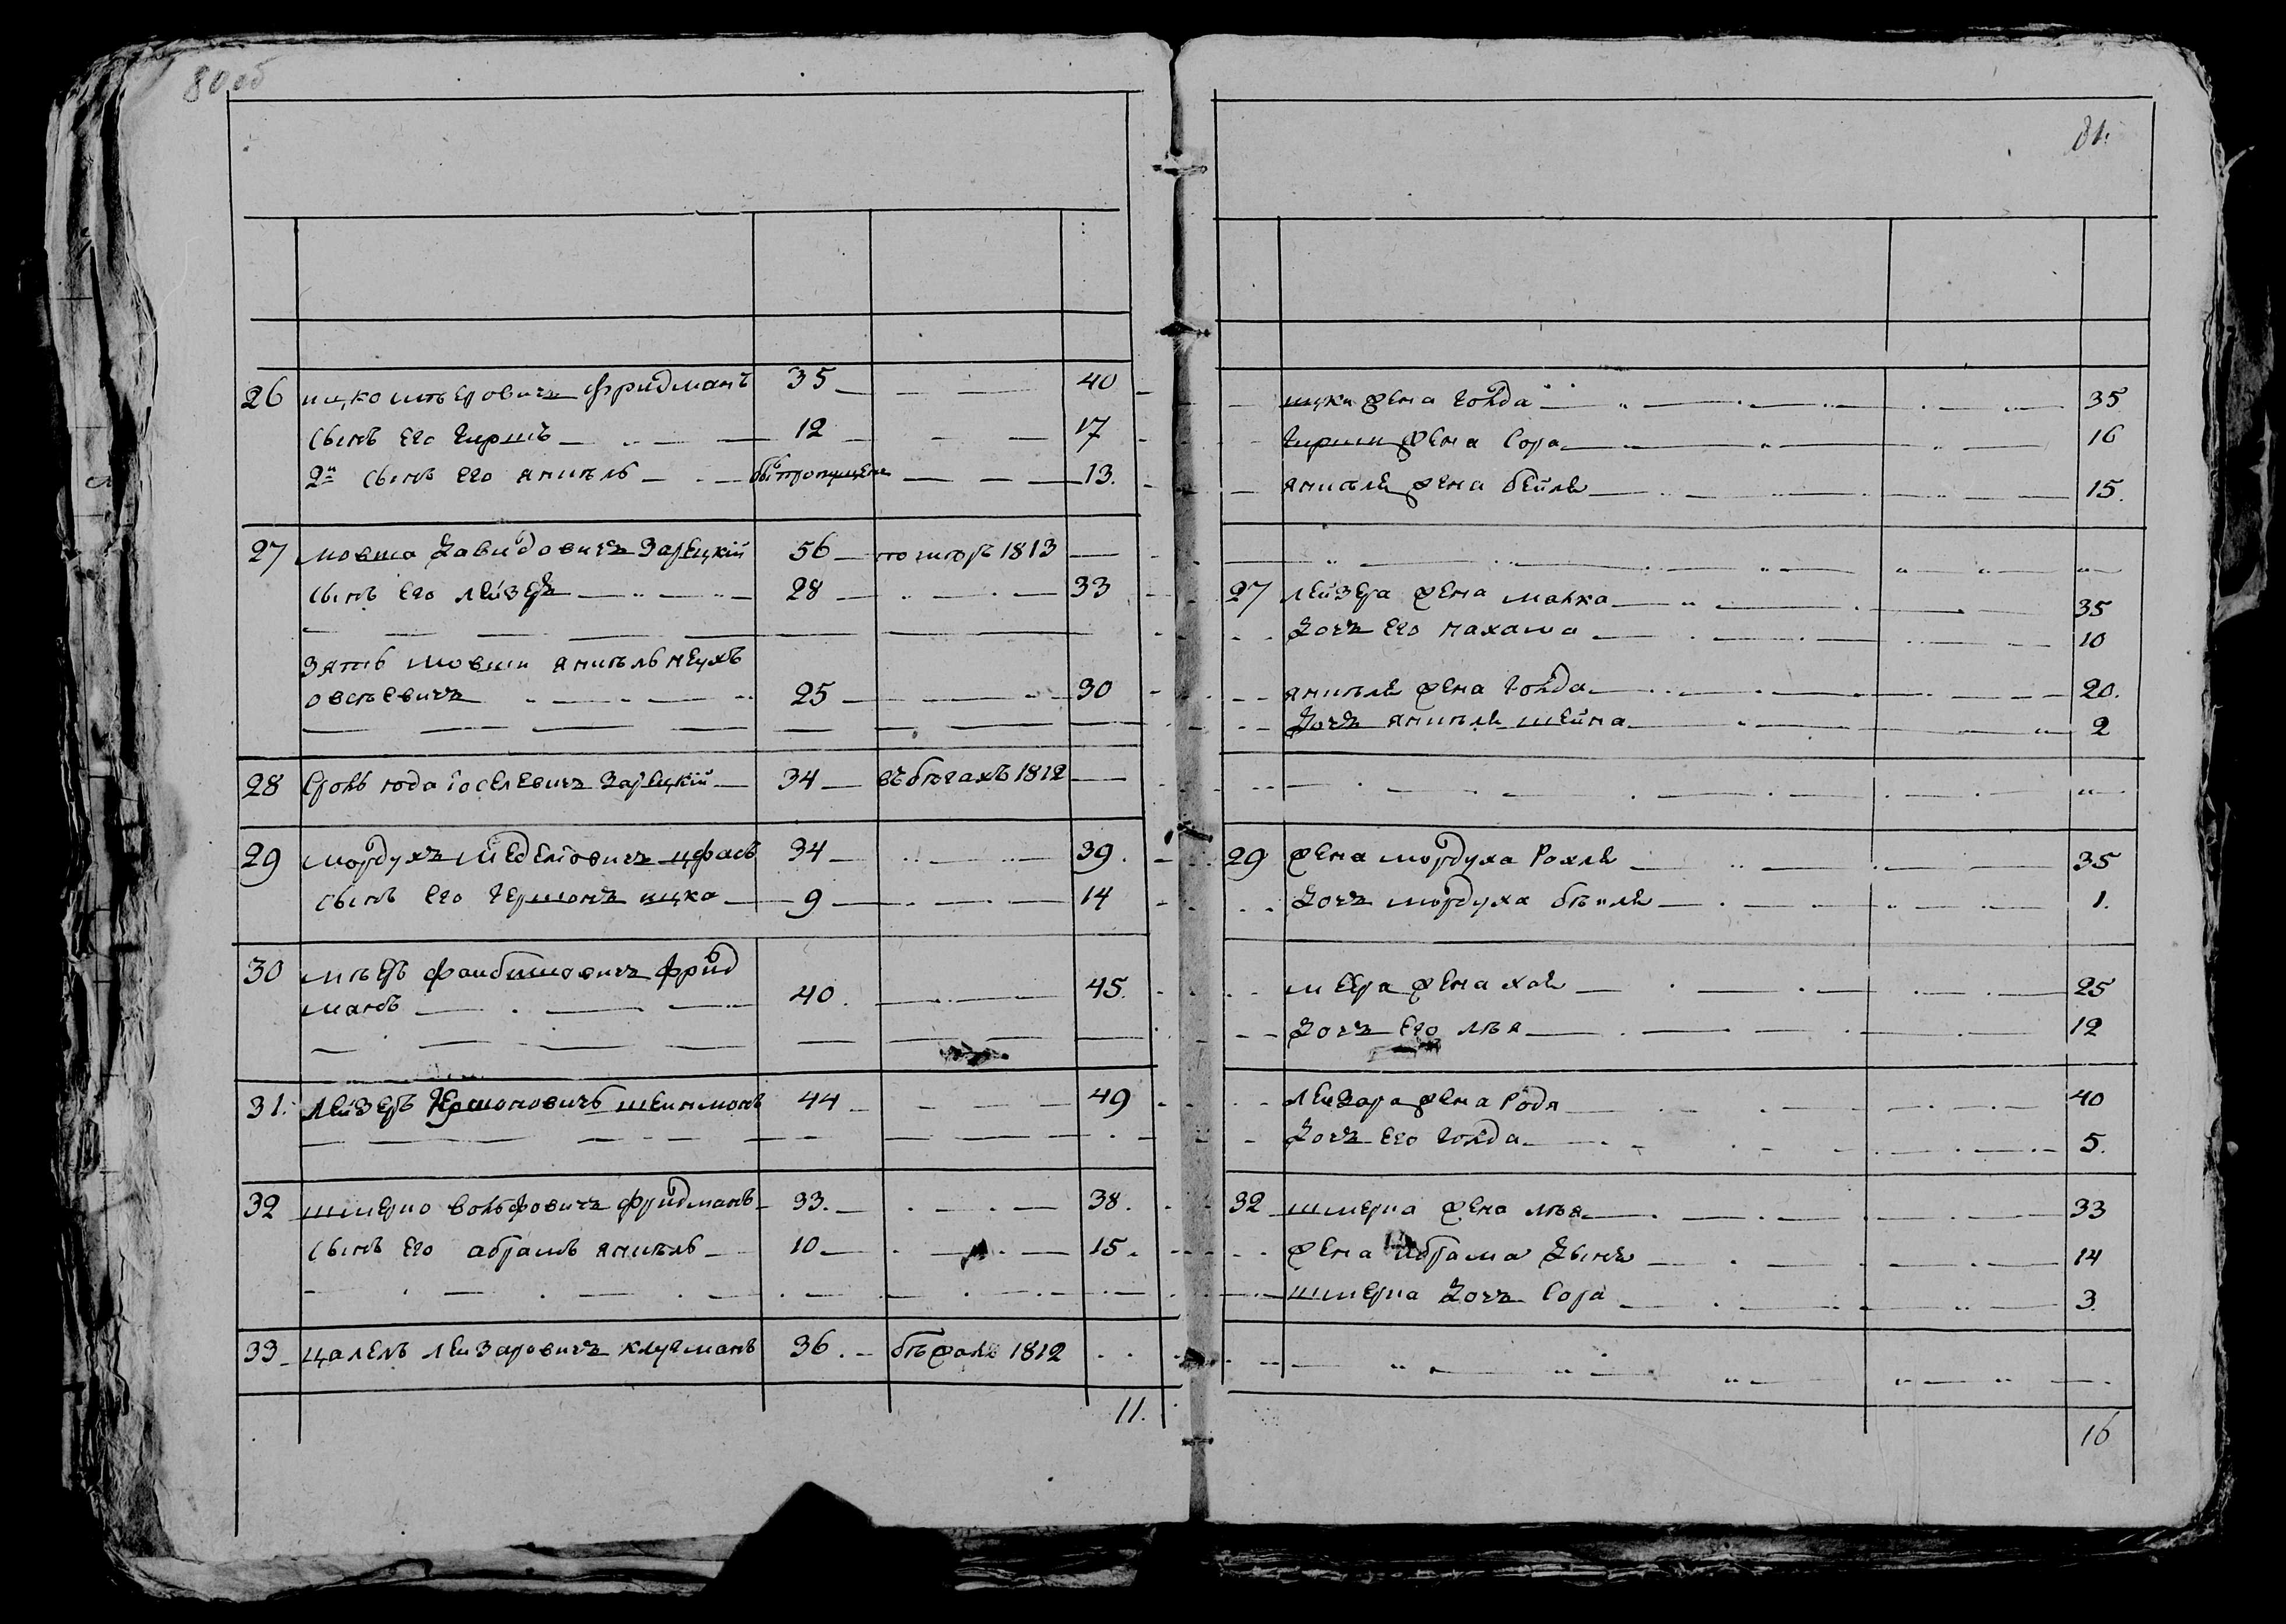 80 об
26 ицко мѣеровичъ фридманъ 35 40
сынъ его гиршъ 12 17
2й сынъ его янкель былъ пропущенъ 13.
27 мовша давидовичъ зарецкій 56 1813
сынъ его лейзеръ 28 33
зять мовши янкель
овсѣевичъ 25 30
28 сроль юда іоселевичъ зарецкій 34 въ бѣгахъ 1812
29 мордухъ цфасъ 34 39.
сынъ его гершонъ ицко 9 14
30 мѣеръ файбишовичъ фрид
манъ 40. 45.
31. лейзеръ гершоновичъ шейнманъ 44 49
32 шмерко вольфовичъ фридманъ 33. 38.
сынъ его абрамъ янкель 10 15.
33 цалелъ лейзаровичъ клугманъ 36. 1812
11.
81.
ицки жена голда 35
гирши жена сора 16
янкеля жена бейля 15.
27 лейзера жена малка 35
дочъ его нахама 10
янкеля жена голда 20.
дочъ янкеля шейна 2
29 жена мордуха рохля 35
дочъ мордуха бѣйля 1.
меера жена хая 25
дочъ его лѣя 12
лейзара жена родя 40
дочъ его голда 5.
32 шмерка жена лѣя 33
жена абрама 14
шмерка дочъ сора 3.
16